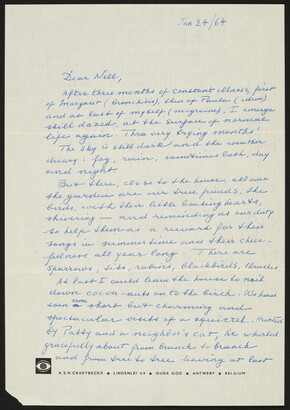 Jan 24/64
Dear Nell,
After three months of constant illness, first
of Margaret (bronchitis), then of Paula
and at last of myself (migraines), I emerge
still dazed, at the surface of normal
life again. Three very trying months!
The sky is still dark and the weather
dreary: fog, rain, sometimes both, day
and night.
But there, close to the house, all over
the garden are our true friends, the
birds, with their little beating hearts,
shivering — and reminding us our duty
to help them as a reward for their
songs in summertime and their cheer-
fulness all year long. There are
sparrows, tits, robins, blackbirds, thrushes
At last I could leave the house to nail
down cocoa-nuts on to the birch. We have
seen some short but charming and
spectacular visits of a squirrel. Hunted
by Patty and a neighbor's cat, he whirled
gracefully about from branch to branch
and from tree to tree leaving at last
A.S.M. CRAEYBECKX • LINDENLEI 53 • OUDE GOD • ANTWERP • BELGIUM